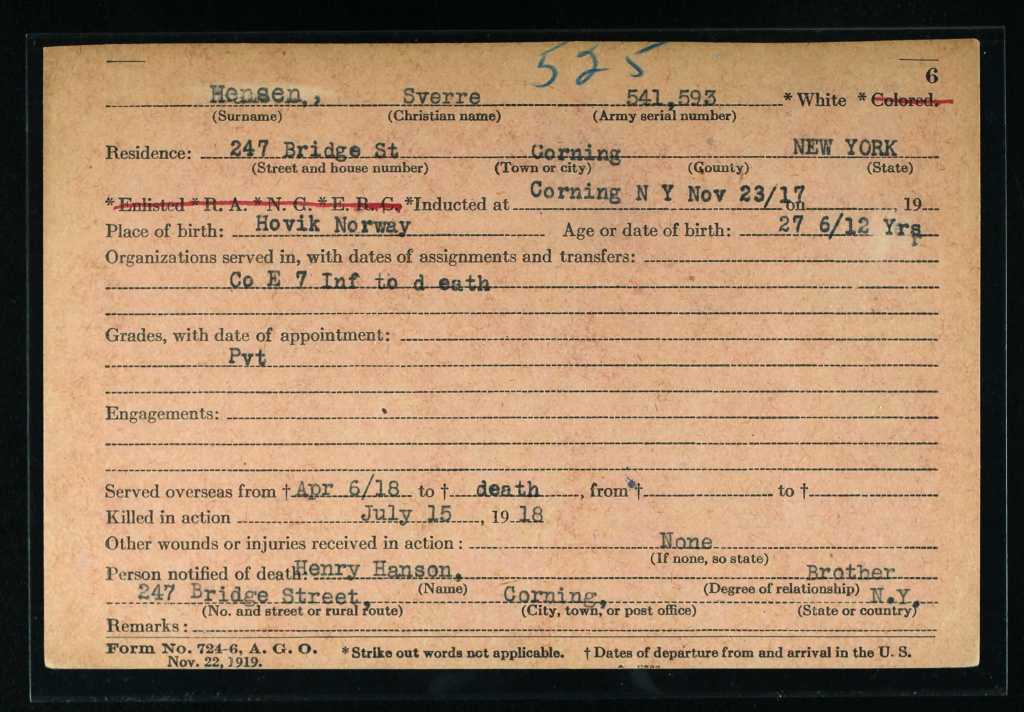 525
6
Hensen, Sverre 541,593 *White *Colored.
(Surname) (Christian name) (Army serial number)
Residence: 247 Bridge St Corning NEW YORK
(Street and house number) (Town or city) (County) (State)
*Enlisted *R. A. *N. G. *E. R. C. *Inducted at Corning N Y Nov 23/17 on , 19
Place of birth: Hovik Norway Age or date of birth: 27 6/12 Yrs
Organizations served in, with dates of assignments and transfers:
Co E 7 Inf to d eath
Grades, with date of appointment:
Pvt
Engagements:
Served overseas from † Apr 6/18 to † death , from † to †
Killed in action July 15 , 19 18
Other wounds or injuries received in action: None
(If none, so state)
Person notified of death: Henry Hanson, Brother
(Name) (Degree of relationship)
247 Bridge Street, Corning, N.Y.
(No. and street or rural route) (City, town, or post office) (State or country)
Remarks:
Form No. 724-6, A. G. O. *Strike out words not applicable. † Dates of departure from and arrival in the U. S.
Nov. 22, 1919.